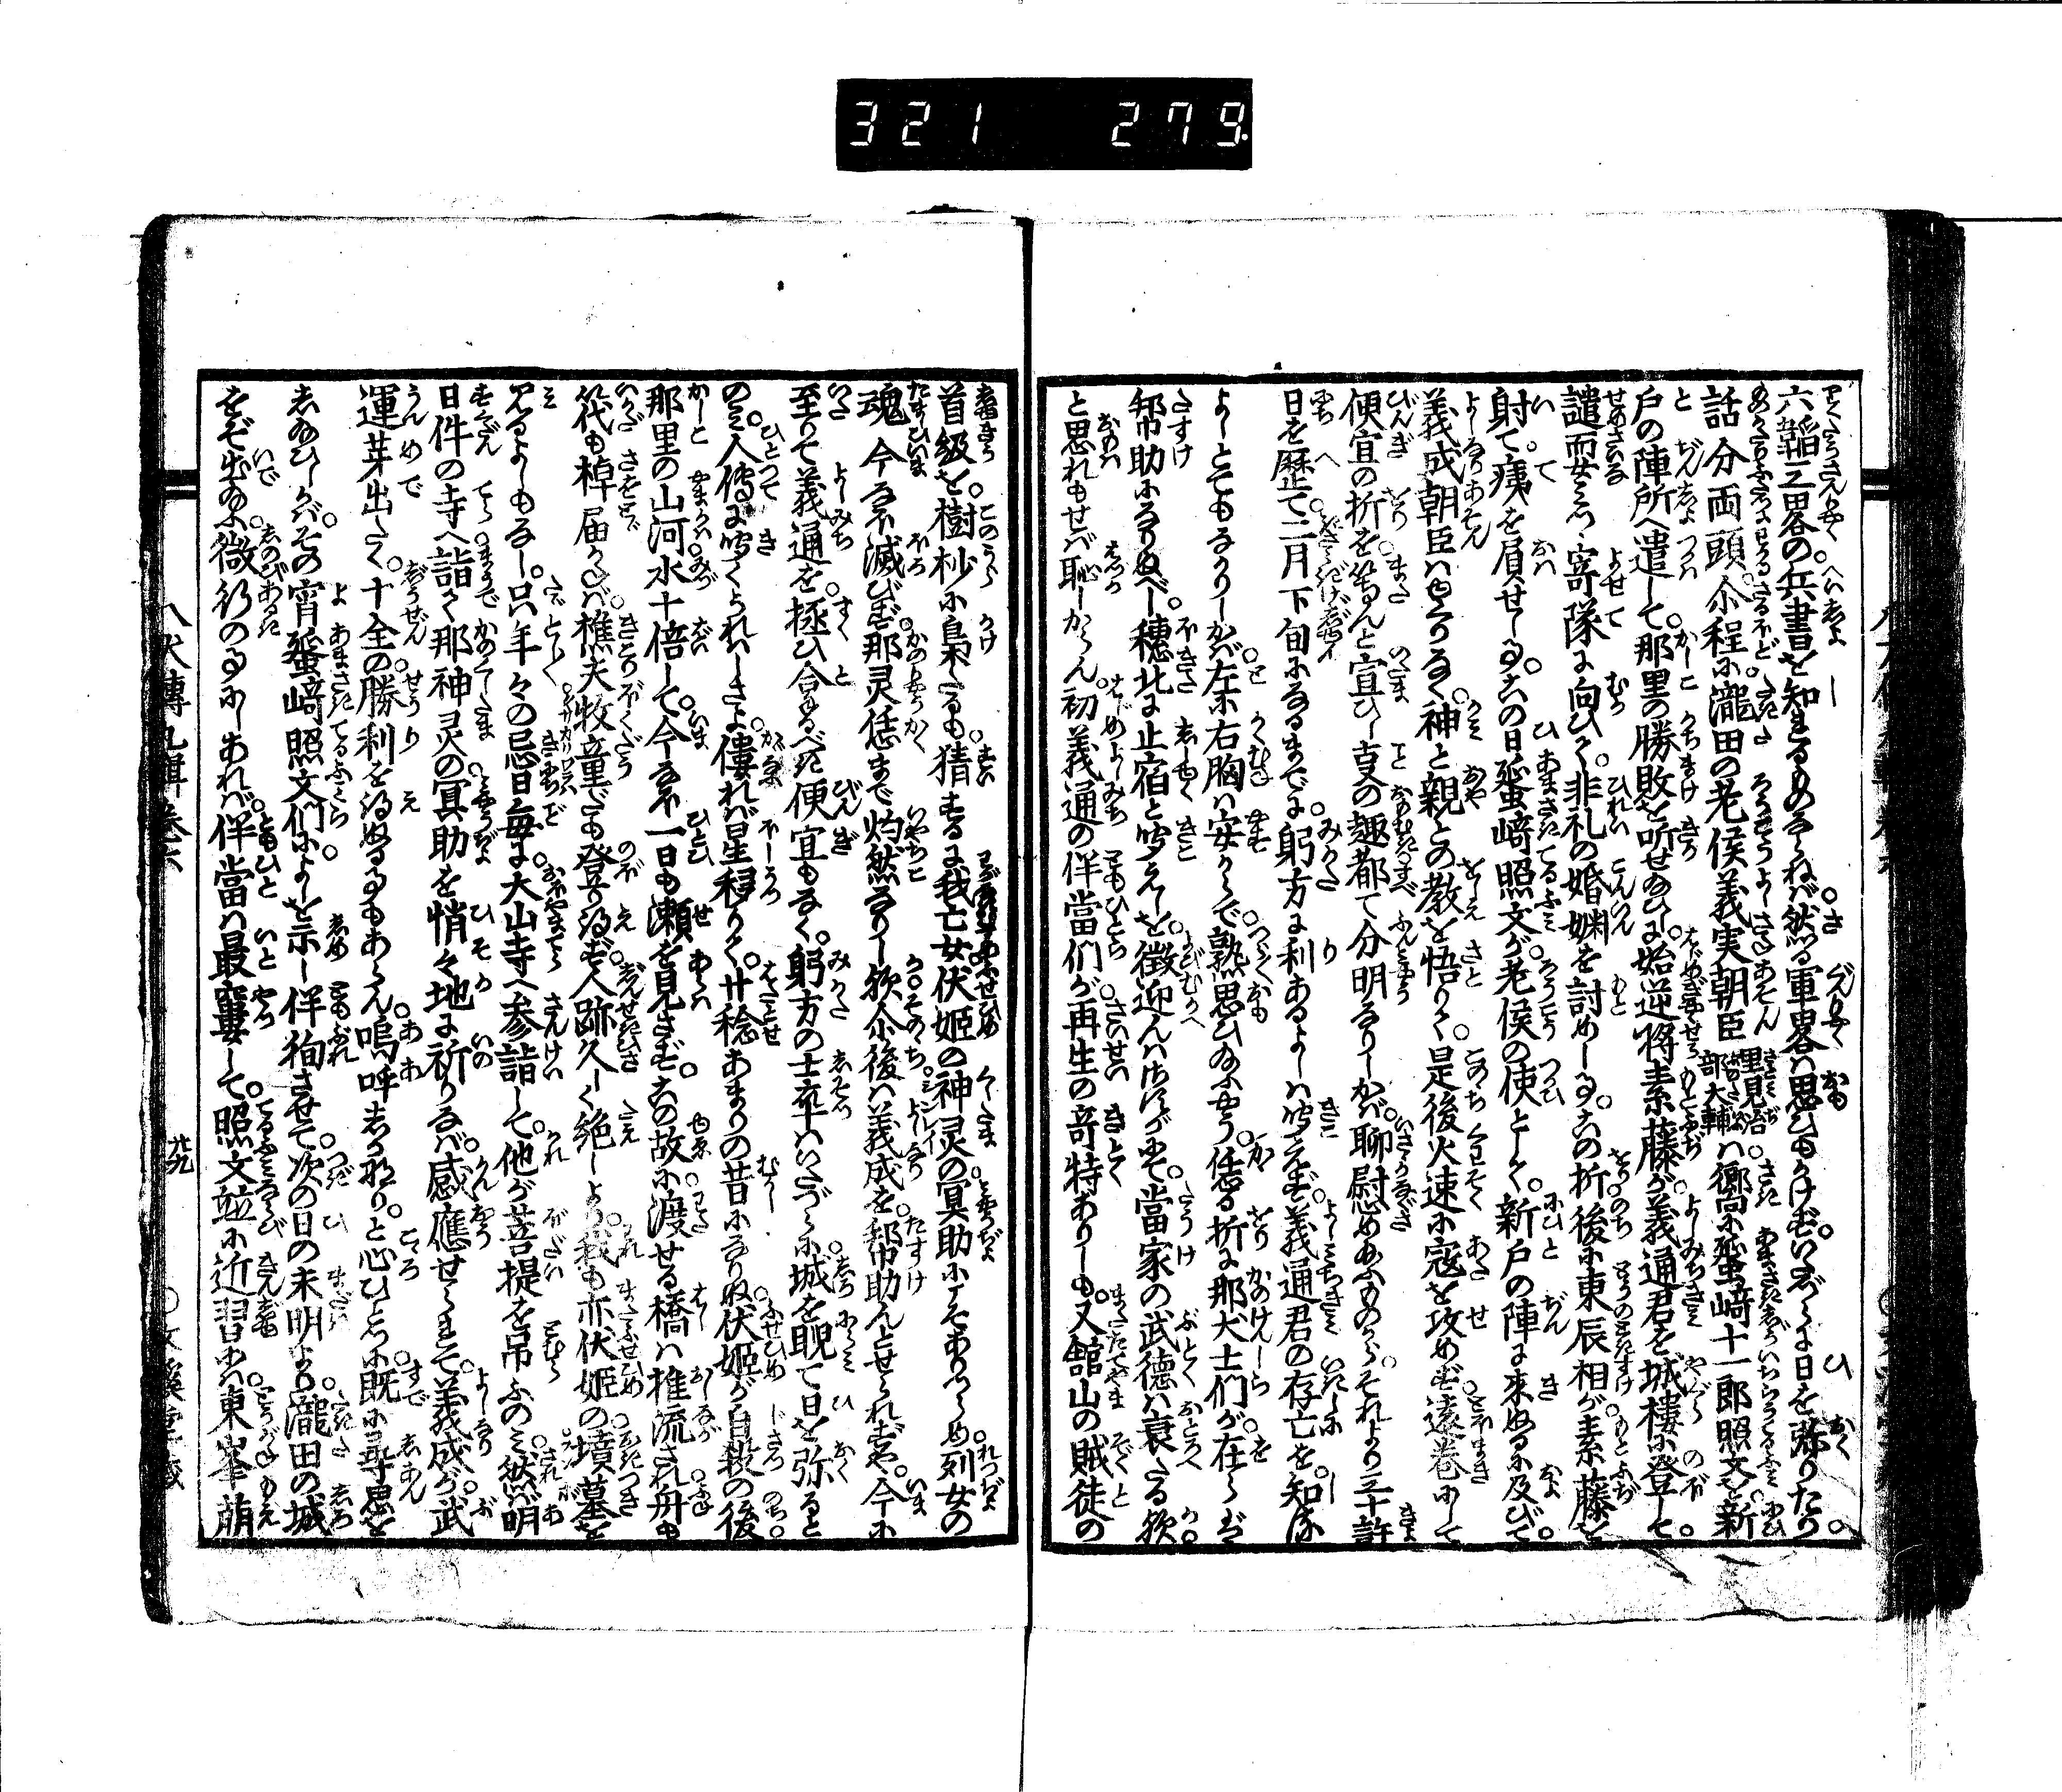 321 279
六韜三畧の兵書を知れるものならねば然る軍畧は思ひもかけずいたづらに日を弥りたり
話分両頭尒程に瀧田の老侯義実朝臣里見治部大輔は嚮に蜑崎十一郎照文を新
戸の陣所へ遣して那里の勝敗を听せ給ひしに始逆将素藤が義通君を城樓に登して
譴而女々しく寄隊に向ひて非礼の婚姻を討めし事その折後に東辰相が素藤を
射て痍を肩せし事この日蜑崎照文が老侯の使として新戸の陣に来ぬるに及びて
義成朝臣はゆくりなく神と親との教を悟りて是後火速に寇を攻めず遠巻にして
便宜の折を等んと宣ひし事の趣都て分明なりしかば聊尉め給ふものからそれより三十許
日を歴て二月下旬になるまでに躬方に利あるよしは聞えず義通君の存亡を知る
よしとてもなかりしかば左に右胸は安からで熟思ひ給ふやう恁る折に那犬士們が在らば
幇助になりぬべし穂北に止宿と聞えしを徴迎んはさすがにて當家の武徳は衰たる歟
と思れもせば恥しからん初義通の伴當們が再生の奇特ありしも又舘山の賊徒の
首級を樹杪に梟たるも猜するに我亡女伏姫の神灵の冥助にこそありつらめ列女の
魂今なほ滅びず那灵恁まで灼然なりし歟尒後は義成を幇助んとせられずや今に
至りて義通を拯ひ合るべき便宜もなく躬方の士卒はいたづらに城を睨て日を弥ると
のみ入傳に聞くよれはしさよ僂れば星移りて廿稔あまりの昔になりぬ伏姫が自殺の後
那里の山河水十倍して今なほ一日も瀬を見さずこの故に渡せる橋は推流され舟も
筏も棹届かねば樵夫牧童だも登り得ず人跡久しく絶しより我も亦伏姫の墳墓を
見るよしもなし只年々の忌日毎に大山寺へ参詣して他が菩提を吊ふのみ然ば明
日件の寺へ詣て那神灵の冥助を悄々地に祈りなば感應せられて義成が武
運芽出たく十全の勝利を得ぬる事もあらん嗚呼しかなりと心ひとつに既に尋思を
し給ひしかばその宵蜑﨑照文們によしを示し伴狥させて次の日の未明より瀧田の城
をぞ出給ふ微行の事にしあれば伴當は最窶して照文並に近習には東峯萌
八犬傳九輯巻六
〇文溪堂藏